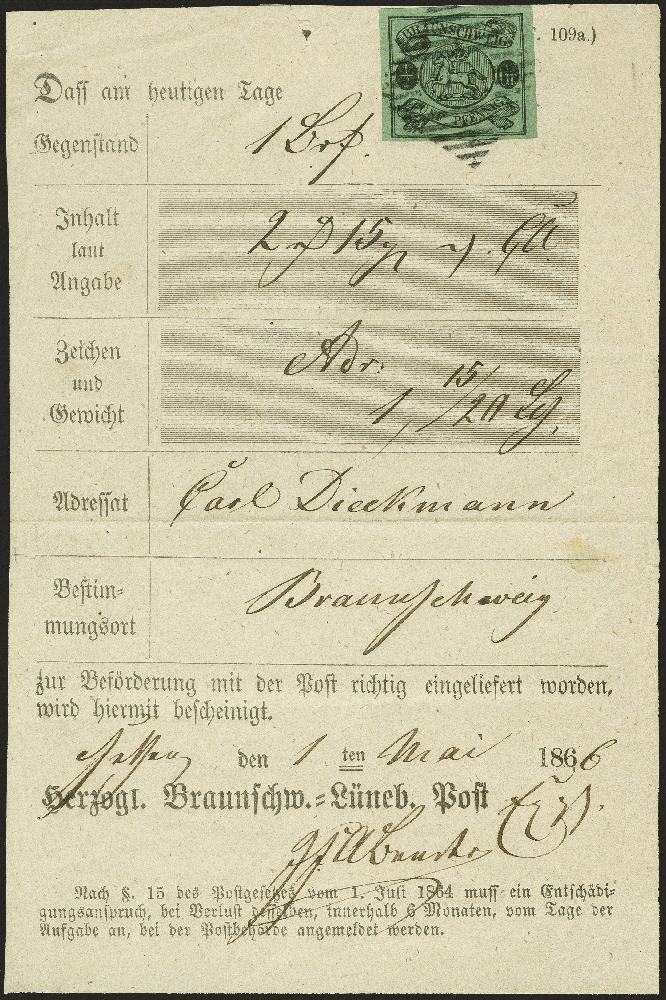 109a.)
BRAUNSCHWEIG
PFENNIG
Dass am heutigen Tage
Gegenstand 1 Brf.
Inhalt
laut
Angabe
2 15
Zeichen
und
Gewicht
Adr:
1, 15/20
Adressat Carl Dieckmann
Bestim-
mungsort
Braunschweig
zur Beförderung mit der Post richtig eingeliefert worden,
wird hiermit bescheinigt.
den 1 ten Mai 1866
Herzogl. Braunschw.=Lüneb. Post
Nach §. 15 des Postgesetzes vom 1. Juli 1864 muss ein Entschädi-
gungsanspruch, bei Verlust desselben, innerhalb 6 Monaten, vom Tage der
Aufgabe an, bei der Postbehörde angemeldet werden.